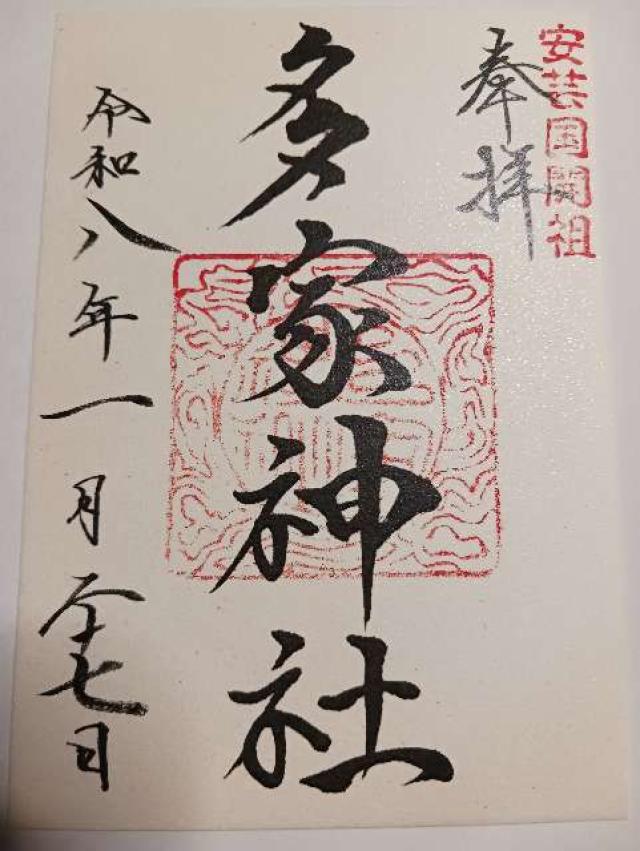 安芸国開祖
奉拝
多家神社
令和八年一月二十七日